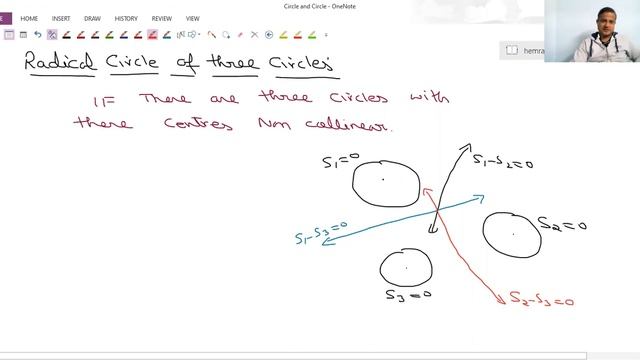 Circle and Circle - OneNote
HOME INSERT DRAW HISTORY REVIEW VIEW
hemra
Radical Circle of three Circles
IF There are three circles with
there centres Non collinear.
S1=0
S1-S2=0
S1-S3=0
S2=0
S3=0
S2-S3=0